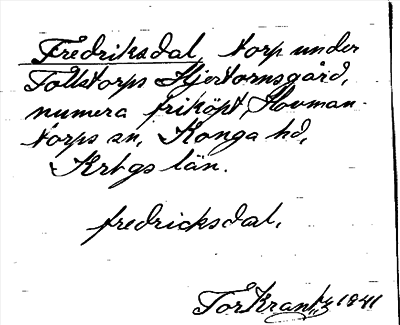 Fredriksdal, torp under
Tollstorps Hjertornsgård,
numera friköpt, Hovman-
torps sn, Konga hd,
Krbgs län.
fredricksdal.
Tor Krantz 1941